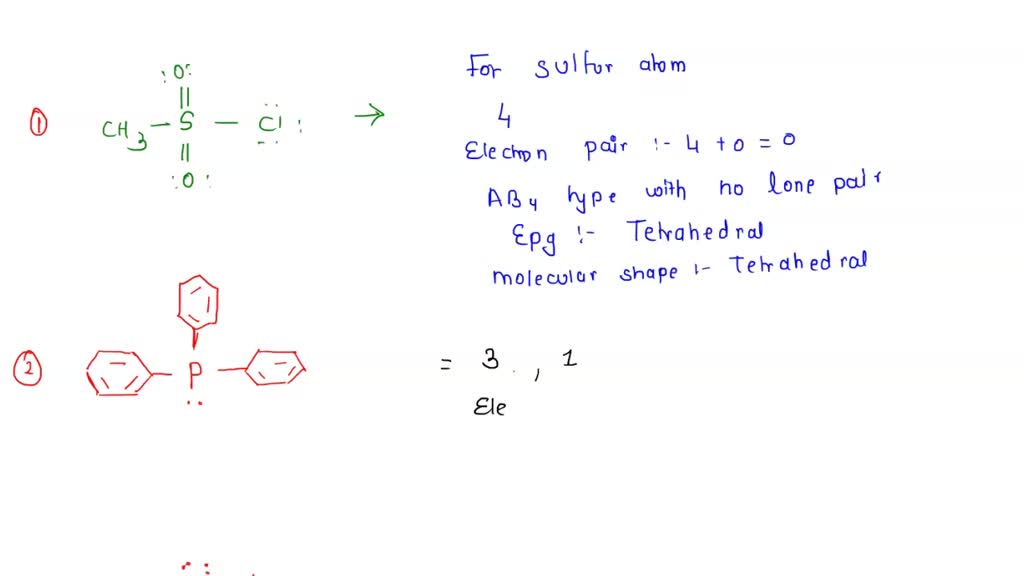 For sulfur atom
:O:
① CH3 – S – Cl: →
4
Electron pair :- 4 + 0 = 0
:O:
AB4 type with no lone pair
Epg :- Tetrahedral
molecular shape :- Tetrahedral
② P = 3 , 1
Ele